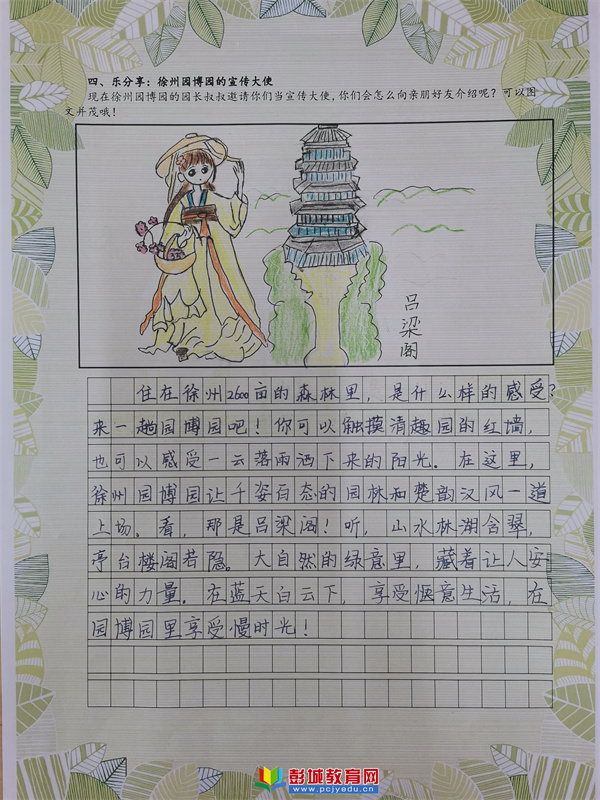 四、乐分享：徐州园博园的宣传大使
现在徐州园博园的园长叔叔邀请你们当宣传大使，你们会怎么向亲朋好友介绍呢？可以图
文并茂哦！
吕梁阁
住在徐州2600亩的森林里，是什么样的感受？
来一趟园博园吧！你可以触摸清趣园的红墙，
也可以感受一云落雨洒下来的阳光。在这里，
徐州园博园让千姿百态的园林和楚韵汉风一道
上场。看，那是吕梁阁！听，山水林湖含翠，
亭台楼阁若隐。大自然的绿意里，藏着让人安
心的力量。在蓝天白云下，享受惬意生活，在
园博园里享受慢时光！
彭城教育网
www.pcjyedu.cn